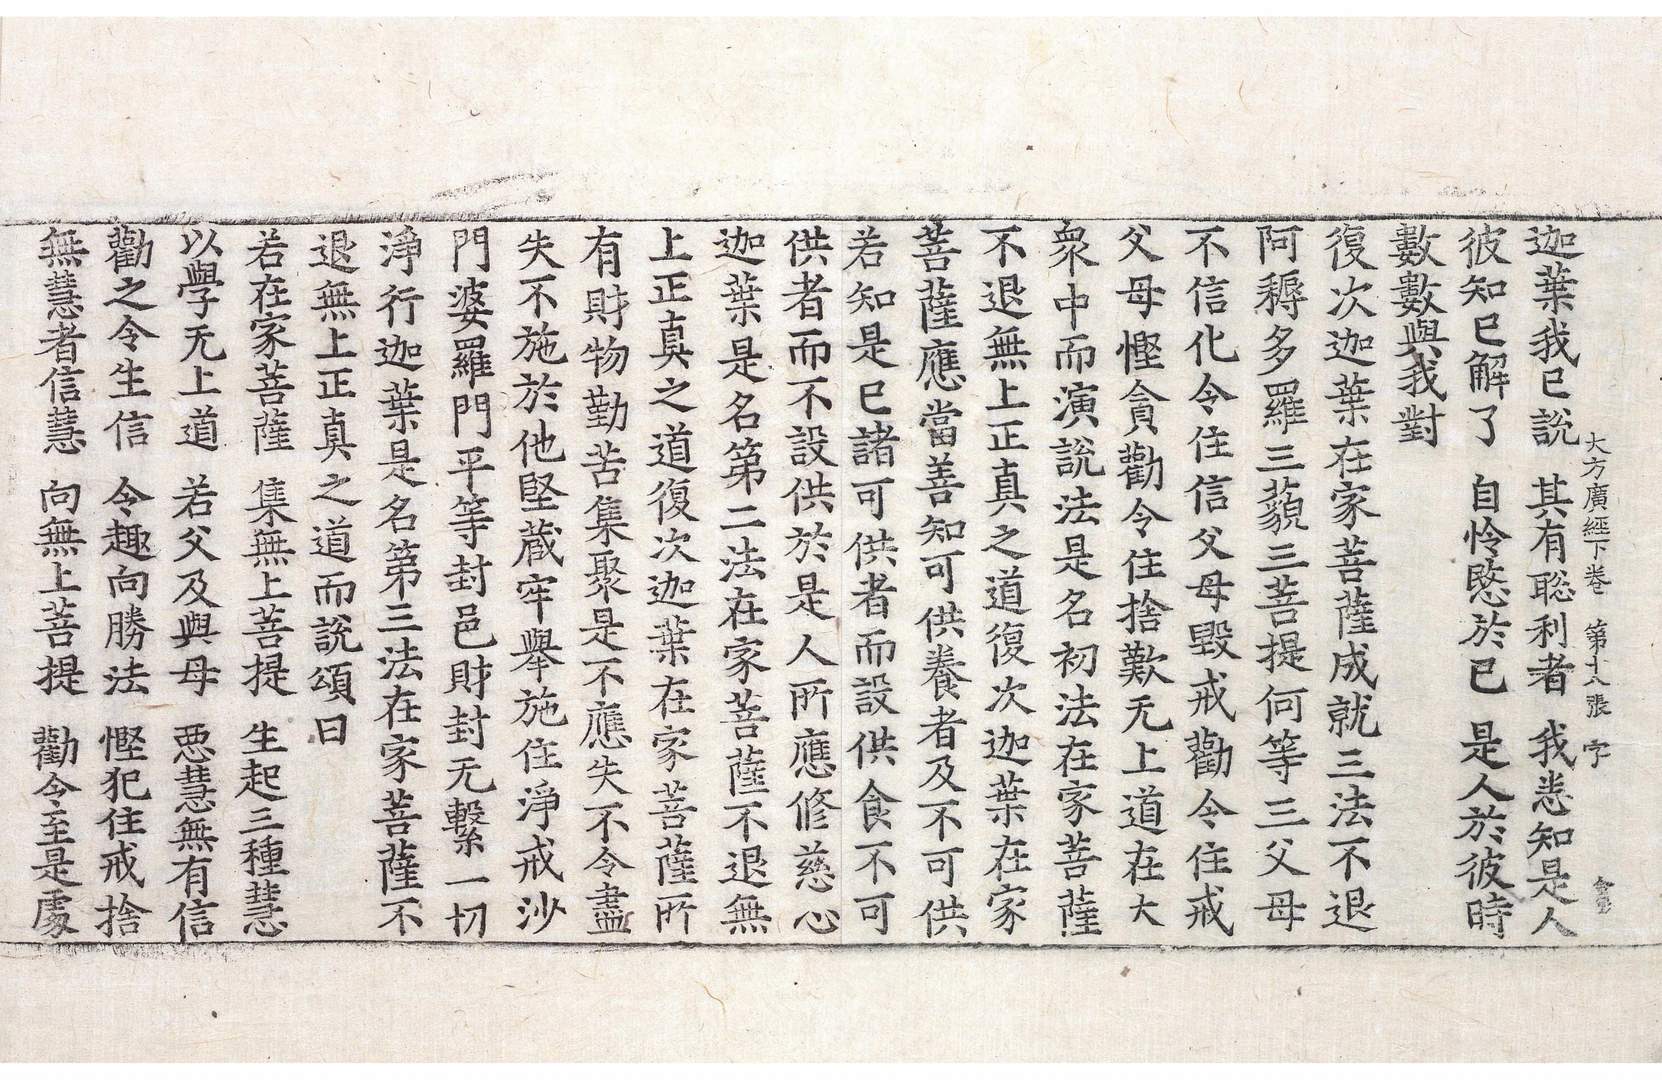 迦葉我已說　其有聡利者　我悉知是人
大方廣經下卷　第十八張　字
彼知已解了　自怜愍於已　是人於彼時
數數與我對
復次迦葉在家菩薩成就三法不退
阿耨多羅三藐三菩提何等三父母
不信化令住信父母毀戒勸令住戒
父母慳貪勸令住捨歎无上道在大
衆中而演說法是名初法在家菩薩
不退無上正真之道復次迦葉在家
菩薩應當善知可供養者及不可供
若知是已諸可供者而設供食不可
供者而不設供於是人所應修慈心
迦葉是名第二法在家菩薩不退無
上正真之道復次迦葉在家菩薩所
有財物勤苦集聚是不應失不令盡
失不施於他堅蔵牢舉施住淨戒沙
門婆羅門平等封邑財封无繫一切
淨行迦葉是名第三法在家菩薩不
退無上正真之道而說頌曰
若在家菩薩　集無上菩提　生起三種慧
以學无上道　若父及與母　惡慧無有信
勸之令生信　令趣向勝法　慳犯住戒捨
無慧者信慧　向無上菩提　勸令至是處